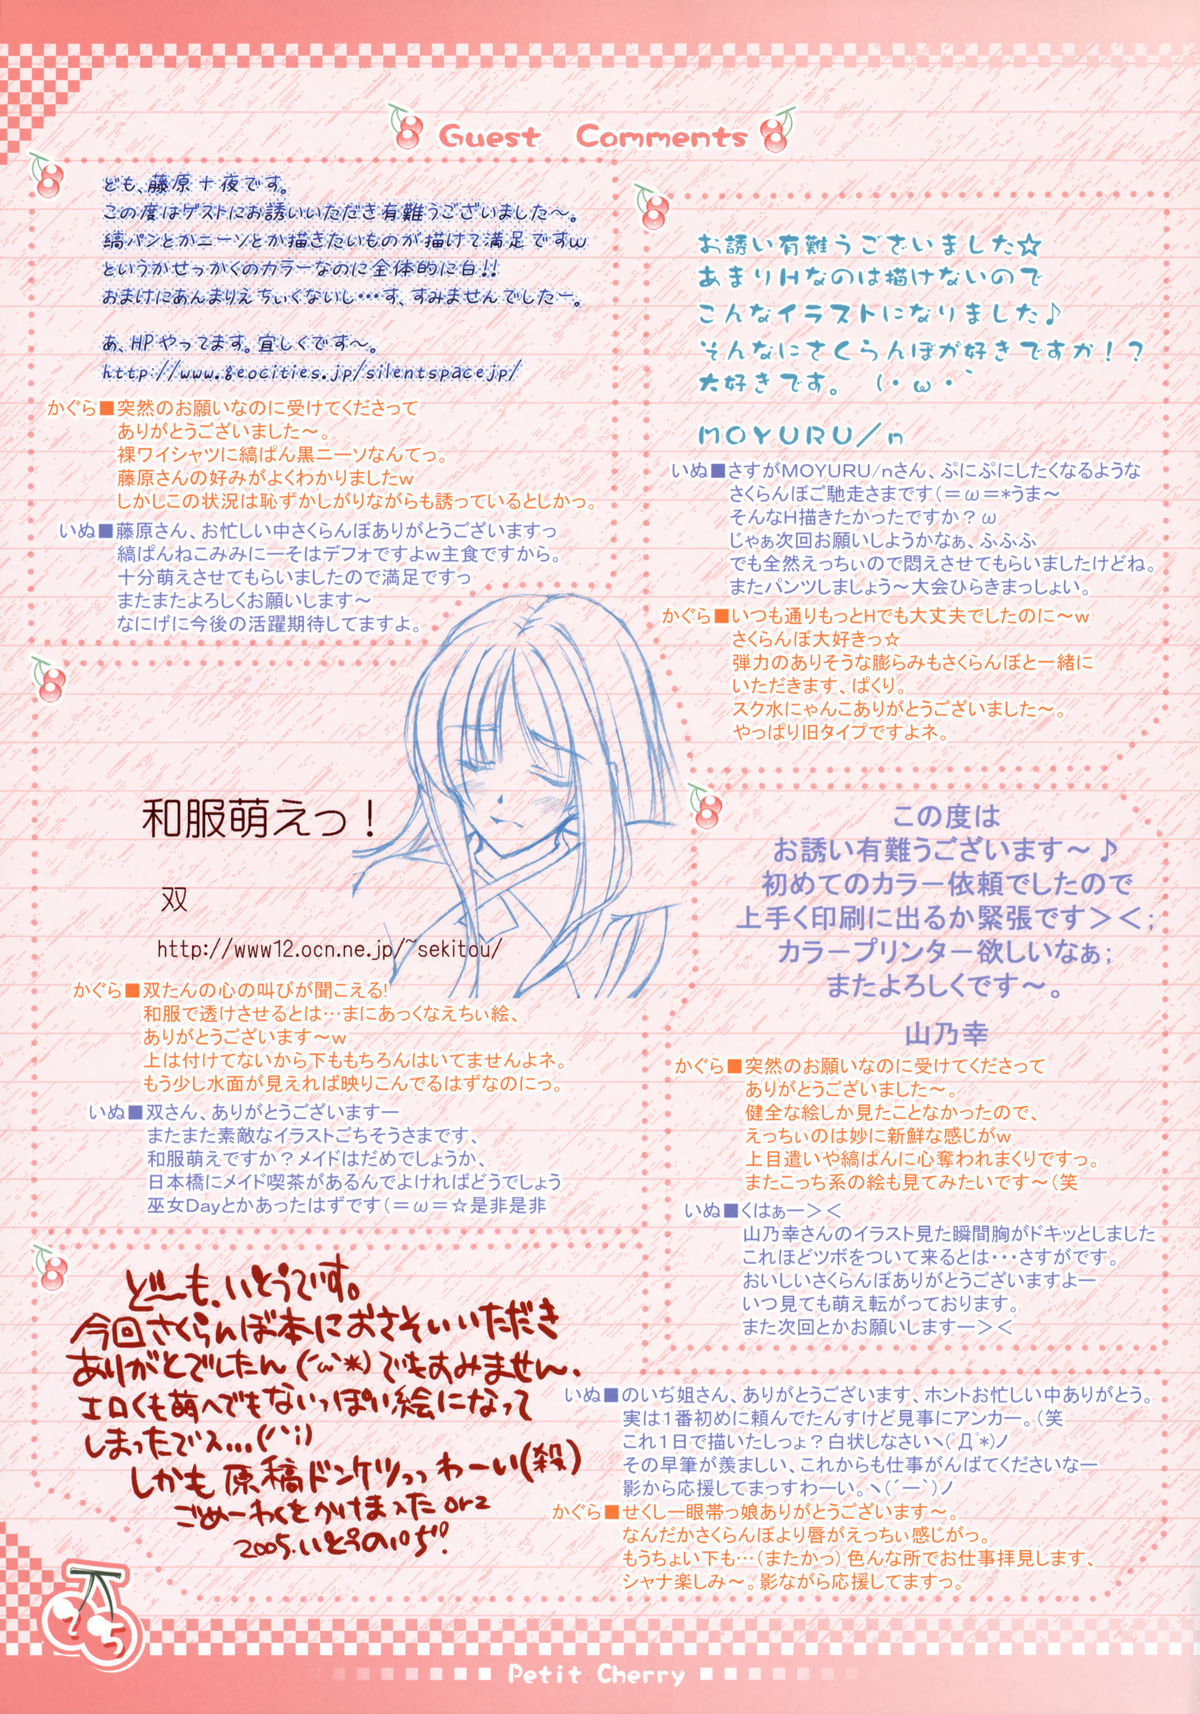 Guest Comments
ども、藤原十夜です。
この度はゲストにお誘いいただき有難うございました〜。
縞パンとかニーソとか描きたいものが描けて満足ですw
というかせっかくのカラーなのに全体的に白!!
おまけにあんまりえちぃくないし…す、すみませんでしたー。
あ、HPやってます。宜しくです〜。
http://www.geocities.jp/silentspacejp/
かぐら■突然のお願いなのに受けてくださって
ありがとうございました〜。
裸ワイシャツに縞ぱん黒ニーソなんてっ。
藤原さんの好みがよくわかりましたw
しかしこの状況は恥ずかしがりながらも誘っているとしかっ。
いぬ■藤原さん、お忙しい中さくらんぼありがとうございますっ
縞ぱんねこみみにーそはデフォですよw主食ですから。
十分萌えさせてもらいましたので満足ですっ
またまたよろしくお願いします〜
なにげに今後の活躍期待してますよ。
お誘い有難うございました☆
あまりHなのは描けないので
こんなイラストになりました♪
そんなにさくらんぼが好きですか!?
大好きです。 (・ω・`
MOYURU/n
いぬ■さすがMOYURU/nさん、ぷにぷにしたくなるような
さくらんぼご馳走さまです(=ω=*うま〜
そんなH描きたかったですか?ω
じゃぁ次回お願いしようかなぁ、ふふふ
でも全然えっちぃので悶えさせてもらいましたけどね。
またパンツしましょう〜大会ひらきまっしょい。
かぐら■いつも通りもっとHでも大丈夫でしたのに〜w
さくらんぼ大好きっ☆
弾力のありそうな膨らみもさくらんぼと一緒に
いただきます、ぱくり。
スク水にゃんこありがとうございました〜。
やっぱり旧タイプですよネ。
和服萌えっ!
双
http://www12.ocn.ne.jp/~sekitou/
かぐら■双たんの心の叫びが聞こえる!
和服で透けさせるとは…まにあっくなえちぃ絵、
ありがとうございます〜w
上は付けてないから下ももちろんはいてませんよネ。
もう少し水面が見えれば映りこんでるはずなのにっ。
いぬ■双さん、ありがとうございますー
またまた素敵なイラストごちそうさまです、
和服萌えですか?メイドはだめでしょうか、
日本橋にメイド喫茶があるんでよければどうでしょう
巫女Dayとかあったはずです(=ω=☆是非是非
この度は
お誘い有難うございます〜♪
初めてのカラー依頼でしたので
上手く印刷に出るか緊張です><;
カラープリンター欲しいなぁ;
またよろしくです〜。
山乃幸
かぐら■突然のお願いなのに受けてくださって
ありがとうございました〜。
健全な絵しか見たことなかったので、
えっちぃのは妙に新鮮な感じがw
上目遣いや縞ぱんに心奪われまくりですっ。
またこっち系の絵も見てみたいです〜(笑
いぬ■くはぁー><
山乃幸さんのイラスト見た瞬間胸がドキッとしました
これほどツボをついて来るとは・・・さすがです。
おいしいさくらんぼありがとうございますよー
いつ見ても萌え転がっております。
また次回とかお願いしますー><
どーも、いとうです。
今回さくらんぼ本におさそいいただき
ありがとでしたん(´ω`*)でもすみません、
エロくも萌へでもないっぽい絵になって
しまったでス...(^^;)
しかも原稿ドンケツっっわーい(殺)
ごめーわくをかけまスたorz
2005.いとうのいぢ!
いぬ■のいぢ姐さん、ありがとうございます、ホントお忙しい中ありがとう。
実は1番初めに頼んでたんすけど見事にアンカー。(笑
これ1日で描いたしょっ?白状しなさいヽ(゚Д゚*)ノ
その早筆が羨ましい、これからも仕事がんばてくださいなー
影から応援してまっすわーい。ヽ(´ー`)ノ
かぐら■せくしー眼帯っ娘ありがとうございます〜。
なんだかさくらんぼより唇がえっちぃ感じがっ。
もうちょい下も…(またかっ)色んな所でお仕事拝見します、
シャナ楽しみ〜。影ながら応援してますっ。
Petit Cherry